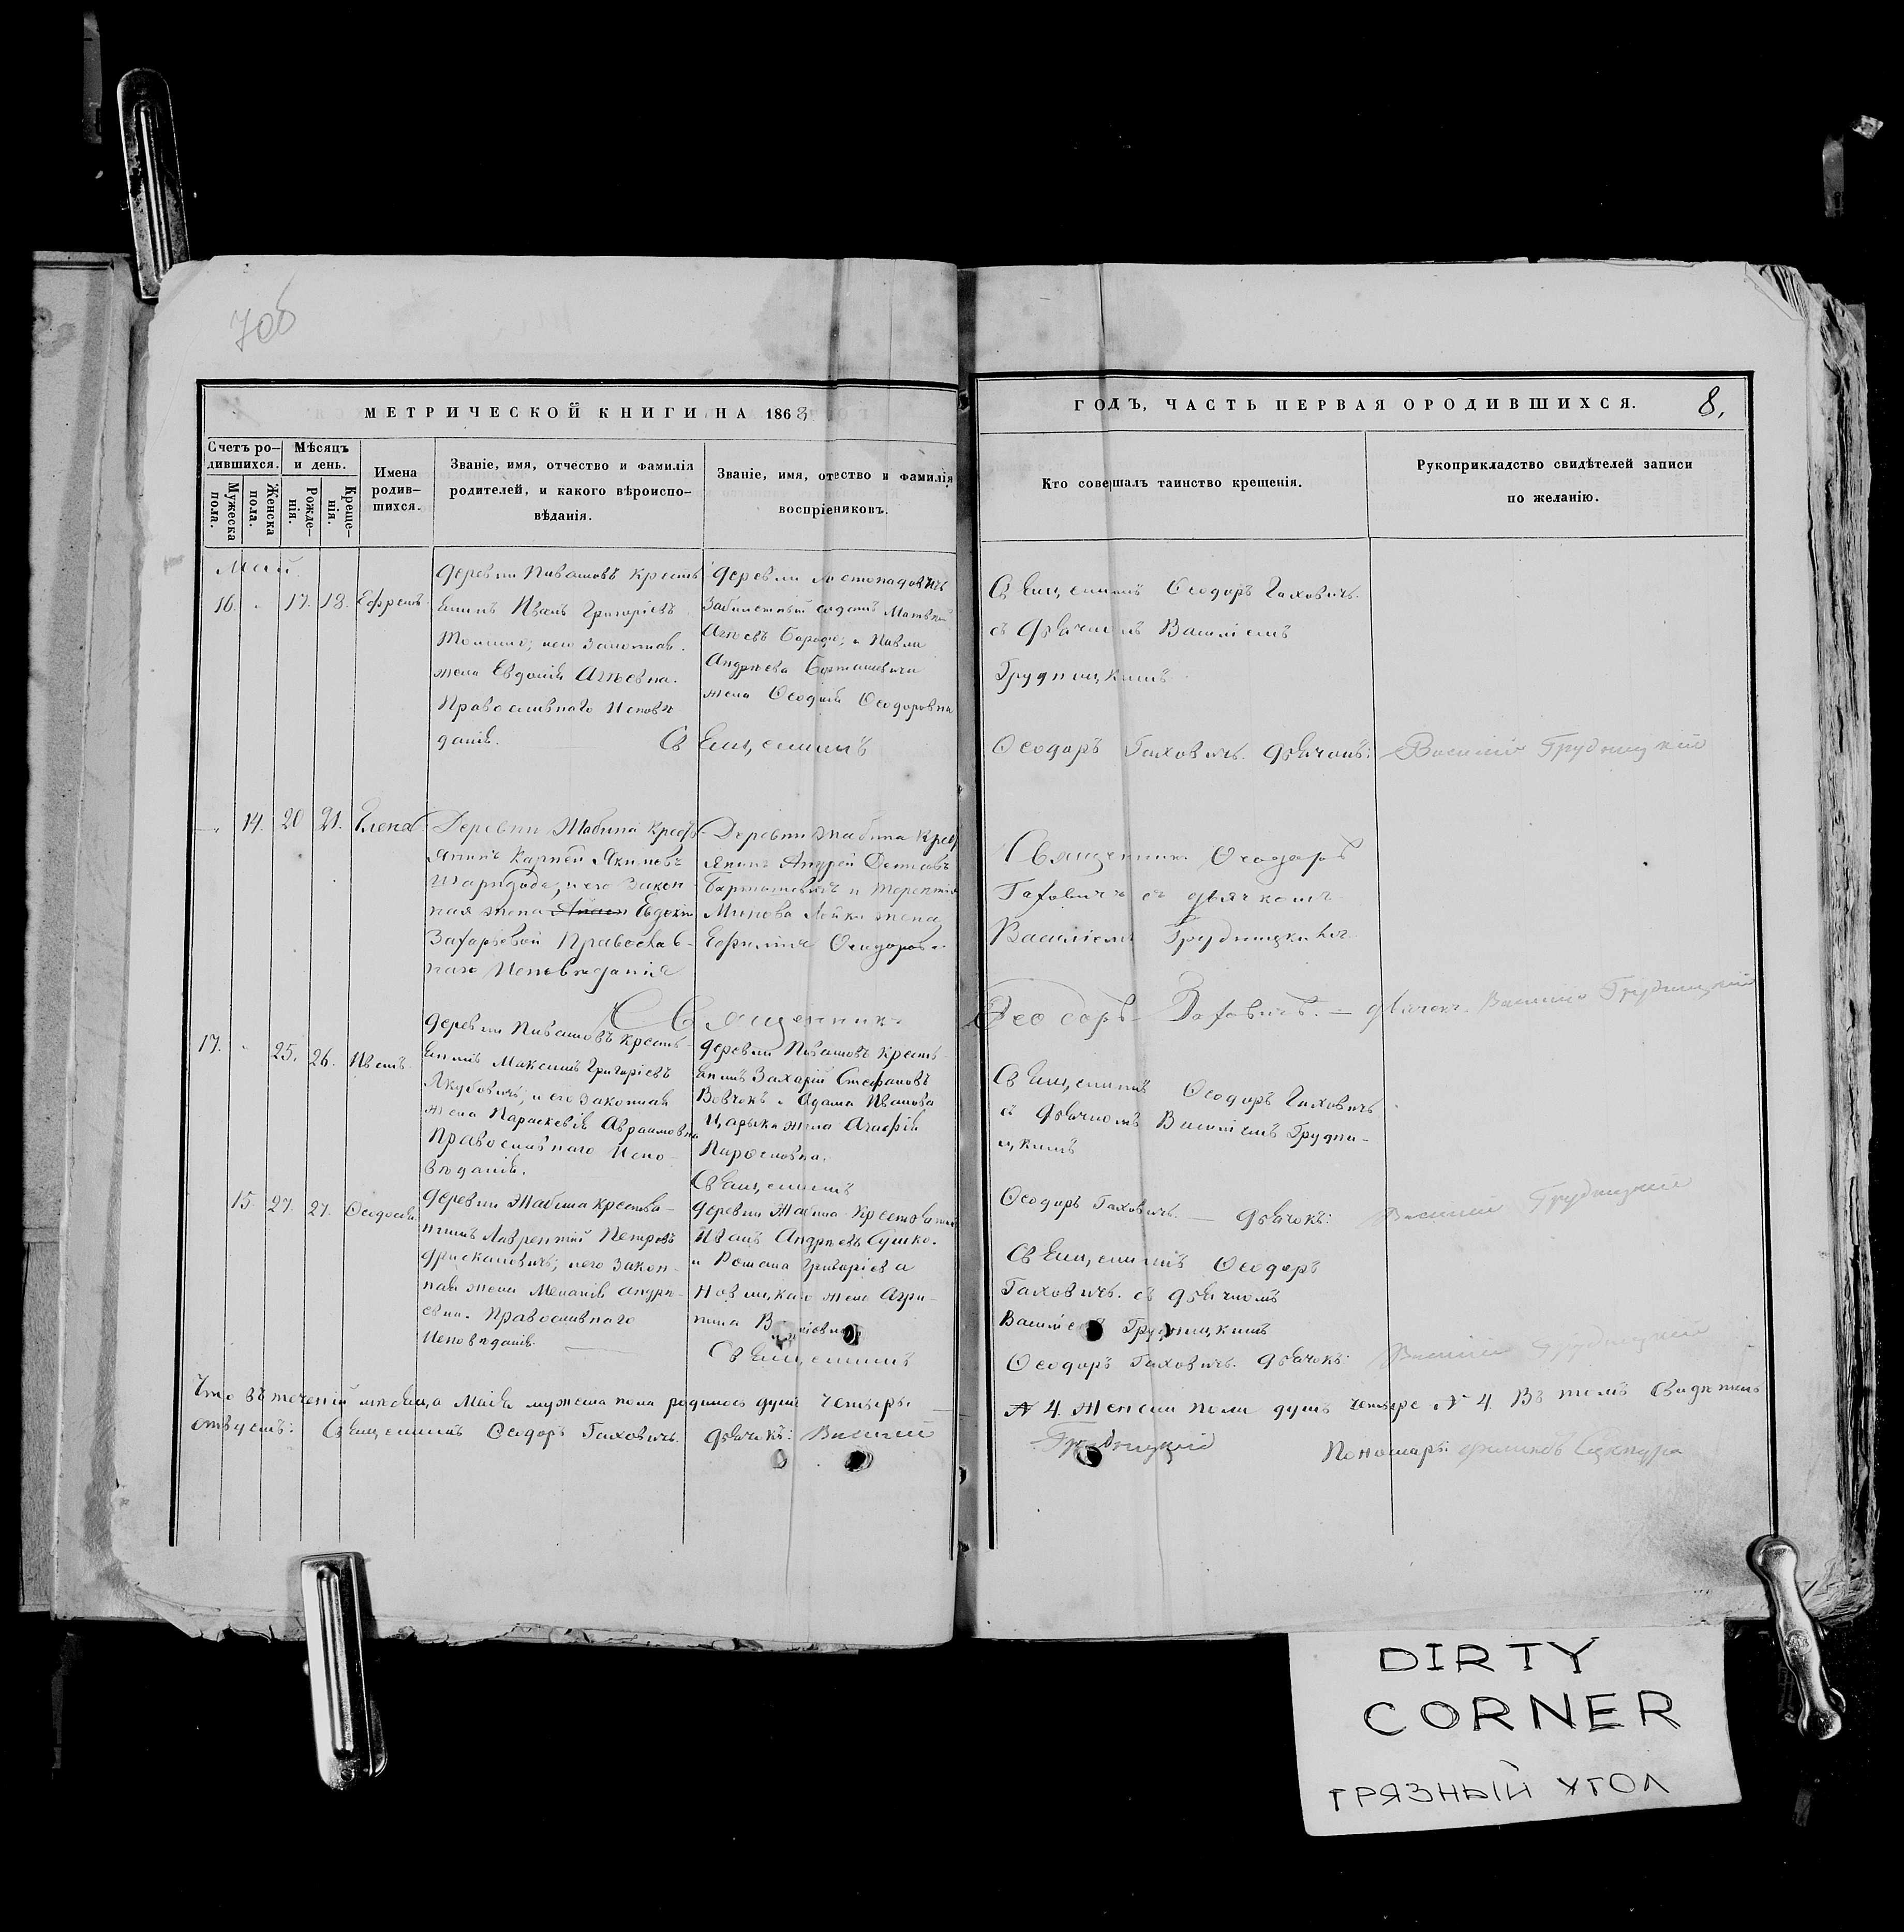 706
МЕТРИЧЕСКОЙ КНИГИ НА 1863
ГОДЪ, ЧАСТЬ ПЕРВАЯ О РОДИВШИХСЯ.
8,
Счетъ ро-
дившихся.
Мужеска
пола.
Женска
пола.
Мѣсяцъ
и день.
Рожде-
нія.
Креще-
нія.
Имена
родив-
шихся.
Званіе, имя, отчество и фамилія
родителей, и какого вѣроиспо-
вѣданія.
Званіе, имя, отество и фамилія
воспріениковъ.
Кто совершалъ таинство крещенія.
Рукоприкладство свидѣтелей записи
по желанію.
Май
16. 17. 18. Ефремъ
Деревни Пивашовъ кресть
янинъ Иванъ Григоріевъ
его законная
жена Евдокія
Православнаго Исповѣ
данія.
Деревни
Андреева
жена Ѳеодосія Ѳеодоровна
Священникъ Ѳеодоръ Гаховичъ
съ дьячкомъ Василіемъ
Грудницкимъ
Священникъ Ѳеодоръ Гаховичъ. Дьячокъ: Василій Грудницкій
14. 20 21. Елена
Деревни Жабина Крест-
янинъ Карпъ Якимовъ
и его Закон-
ная жена Евдокія
Захарьевой Православ-
наго Исповѣданія
Деревни Жабина Крест
янинъ Андрей Денисовъ
Бартошевичъ и Терентія
Минова жена
Ефимія Ѳеодоров
Священникъ Ѳеодоръ
Гаховичъ съ дьячкомъ
Василіемъ Грудницкимъ
Священникъ Ѳеодоръ Гаховичъ. — дьячекъ Василій Грудницкій
17. 25. 26. Иванъ
Деревни Пивашовъ Кресть-
янинъ Максимъ Григоріевъ
Якубовичъ; и его законная
жена Параскевія Авраамовна
Православнаго Испо-
вѣданія.
Деревни Пивашовъ Кресть-
янинъ Захарій Стефановъ
Вовчокъ и Адама Иванова
Царыка жена Агафія
Священникъ Ѳеодоръ Гаховичъ
съ дьячкомъ Василіемъ Грудни-
цкимъ
Священникъ
Ѳеодоръ Гаховичъ. — Дьячокъ: Василій Грудницкій
15. 27. 27. Ѳеодосія
Деревни Жабина Крестья-
нинъ Лаврентій Петровъ
и его Закон-
ная жена Меланія Андре-
евна. Православнаго
Исповѣданія.
Деревни Жабина Крестьянинъ
Иванъ Андреевъ Сушко.
и Романа Григоріева
Новицкаго жена Агри-
пина
Священникъ Ѳеодоръ
Гаховичъ. съ дьячкомъ
Василіемъ Грудницкимъ
Священникъ Ѳеодоръ Гаховичъ. Дьячокъ: Василій Грудницкій
Что въ теченіи мѣсяца Маія мужеска пола родилось душъ четыре
№ 4. Женска пола душъ четыре № 4. Въ томъ свидѣтель
ствуемъ: Священникъ Ѳеодоръ Гаховичъ. Дьячокъ: Василій
Грудницкій Пономарь:
DIRTY
CORNER
ГРЯЗНЫЙ УГОЛ